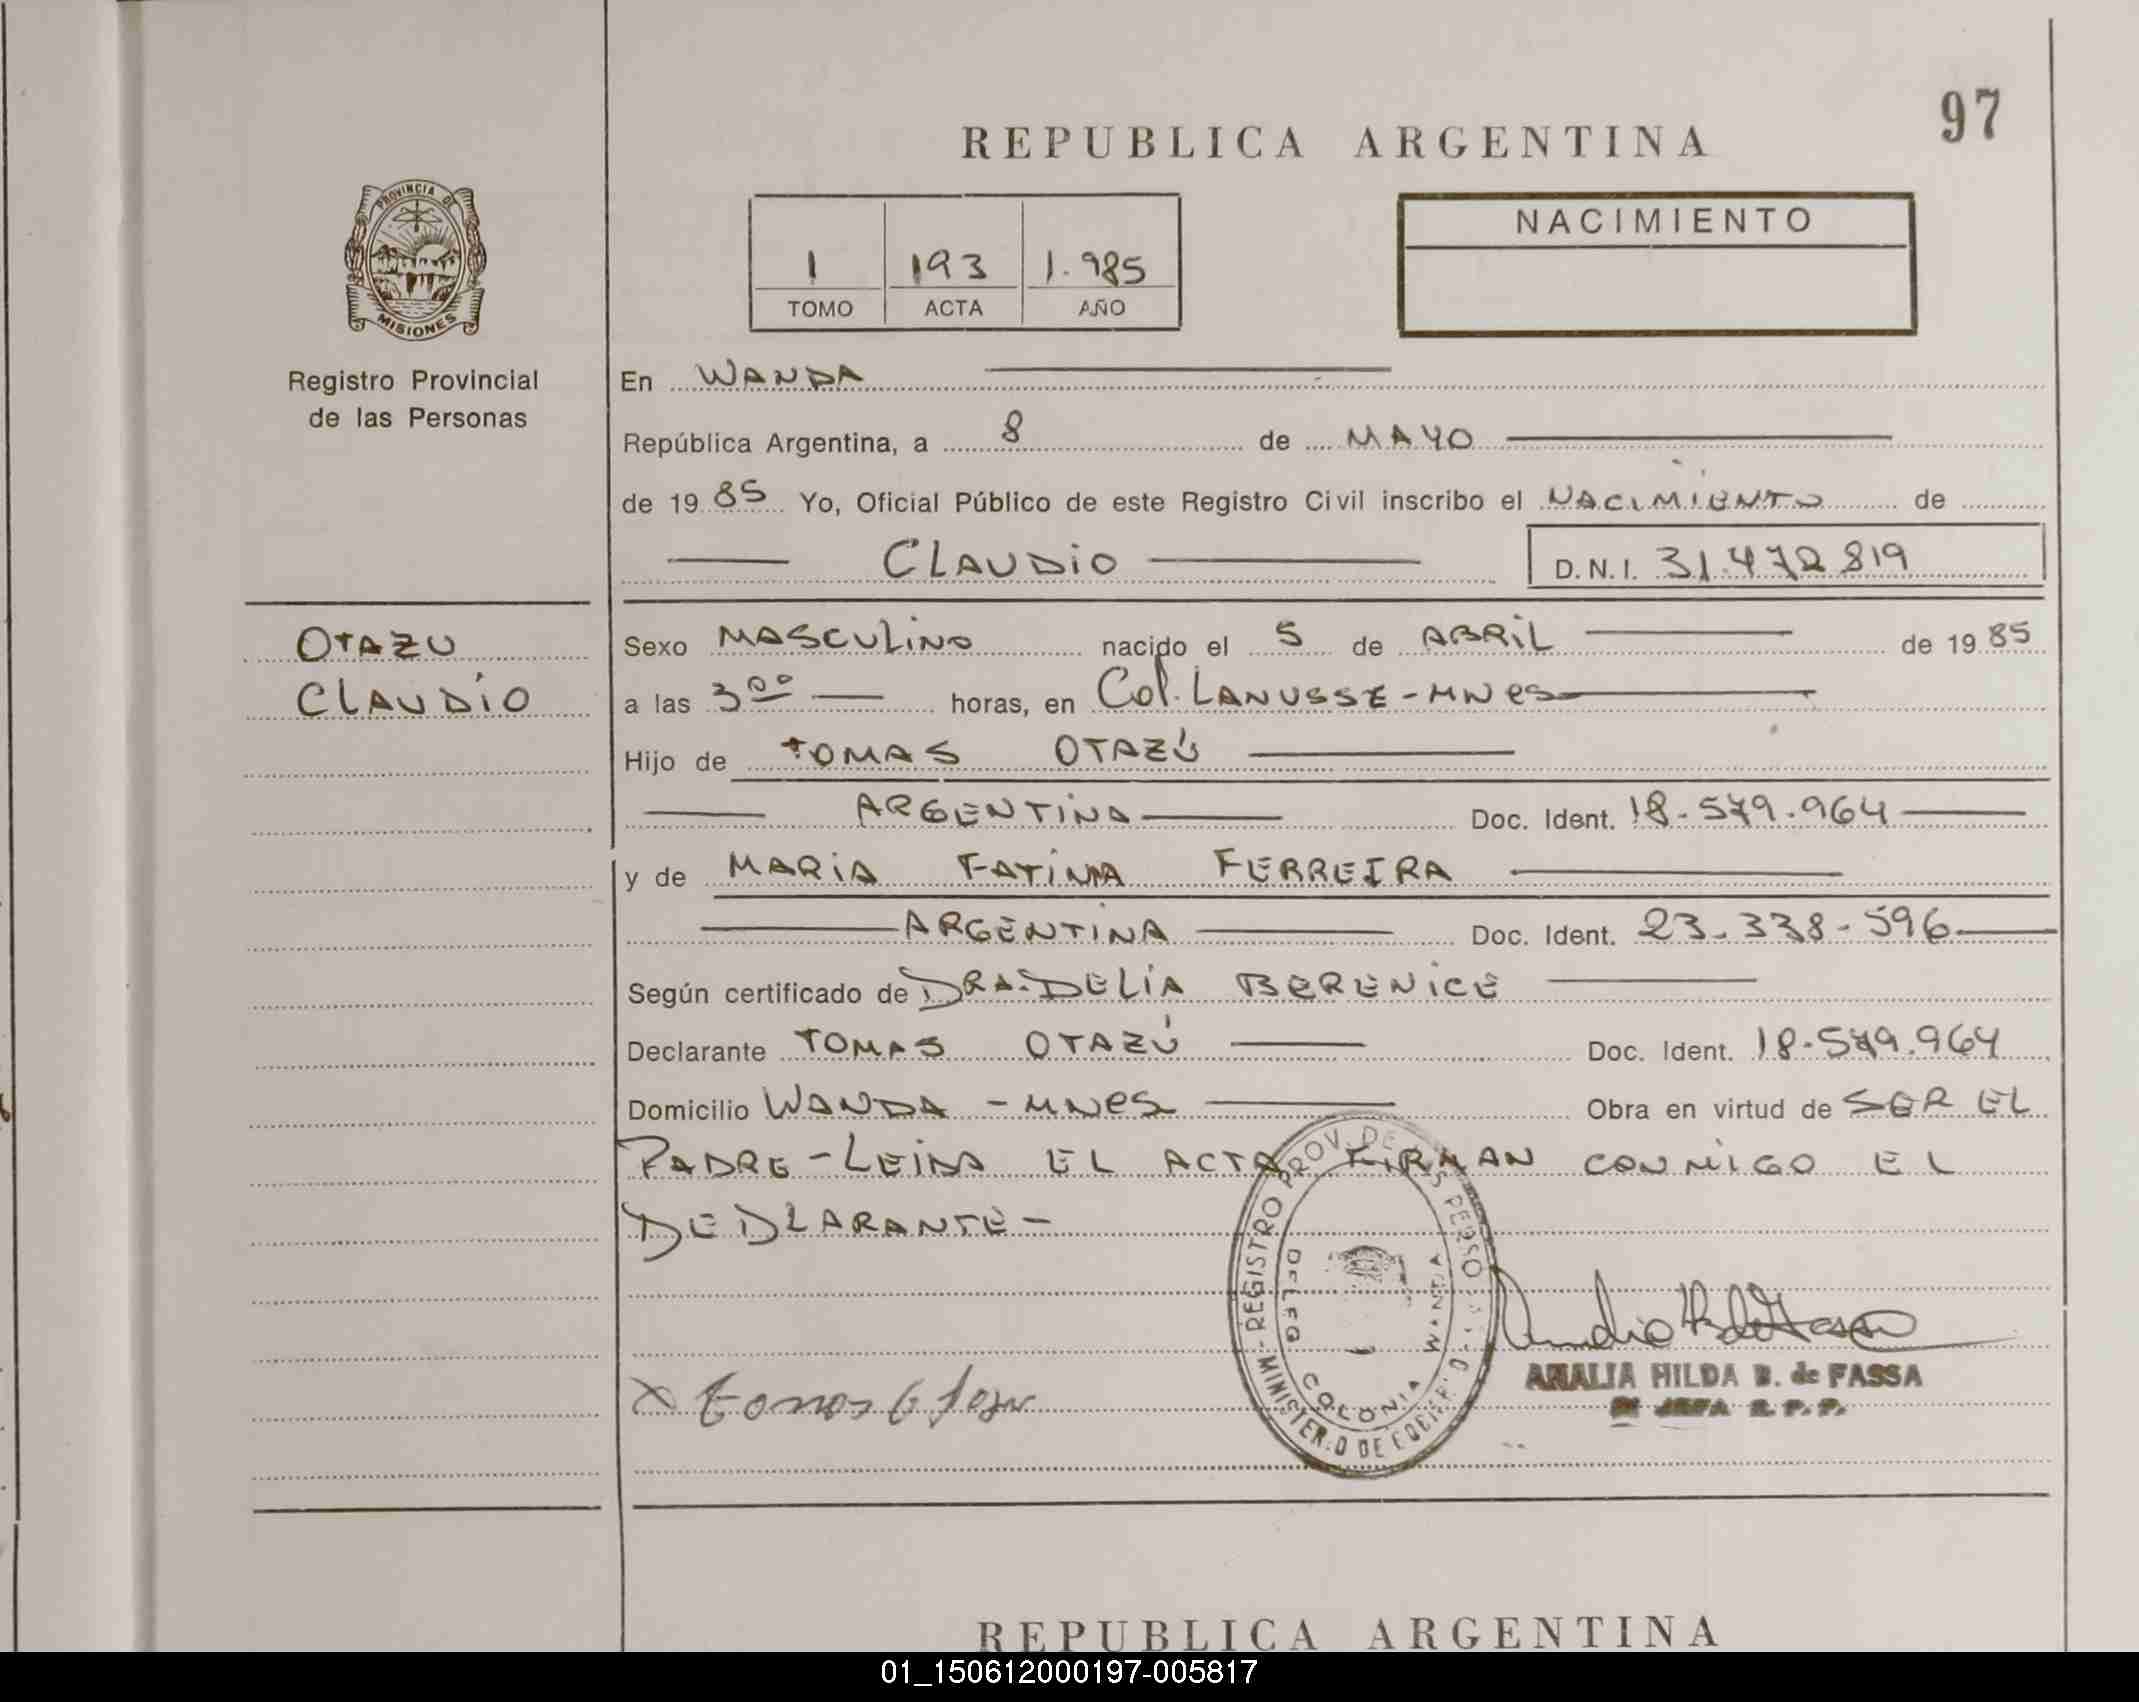 97
REPUBLICA ARGENTINA
PROVINCIA DE
MISIONES
Registro Provincial
de las Personas
1 193 1.985
TOMO ACTA AÑO
NACIMIENTO
En WANDA
República Argentina, a 8 de MAYO
de 1985 Yo, Oficial Público de este Registro Civil inscribo el NACIMIENTO de
CLAUDIO D.N.I. 31.472819
OTAZU
CLAUDIO
Sexo MASCULINO nacido el 5 de ABRIL de 1985
a las 3⁰⁰ horas, en Col. LANUSSE - MNES
Hijo de TOMAS OTAZÚ
ARGENTINA Doc. Ident. 18.579.964
y de MARIA FATIMA FERREIRA
ARGENTINA Doc. Ident. 23.338-596
Según certificado de DRA. DELIA BERENICE
Declarante TOMAS OTAZÚ Doc. Ident. 18.579.964
Domicilio WANDA - MNES Obra en virtud de SER EL
PADRE - LEIDA EL ACTA FIRMAN CONMIGO EL
DEDLARANTE -
MINISTERIO DE - REGISTRO PROV. DE
COLONIA WANDA
ANALIA HILDA B. de FASSA
JEFA R. P. P.
REPUBLICA ARGENTINA
01_150612000197-005817